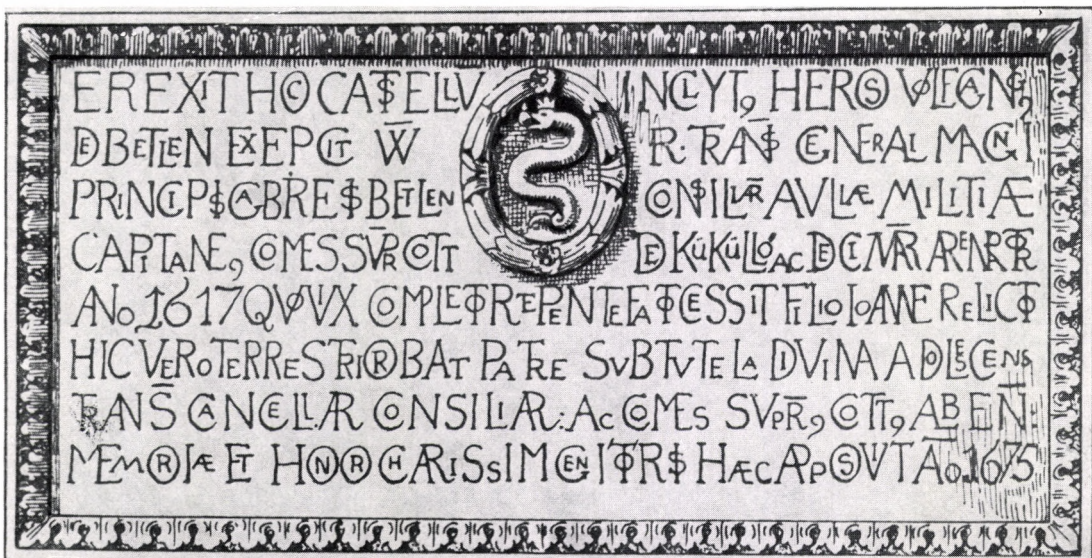 EREXIT HOC CASTELLV INCLYT9 HEROS VOLFGANG9
DE BETLEN EXEPCIT W R. TRANS GENERAL MAGNI
PRINCIPIS GABRIELIS BETLEN CONSILIAR AVLIÆ MILITIÆ
CAPITANE9 COMES SVPR COTT DE KÜKÜLLÖ AC DECIMAR ARENDATOR
ANo 1617 QVO VIX COMPLETO REPENTE FATO CESSIT FILIO IOANNE RELICTO
HIC VERO TERRESTRI ORBAT PATRE SVB TVTELA DIVINA ADOLESCENS
TRANS CANCELLAR CONSILIAR: AC COMES SVPR9 COTT9 ALBEN
MEMORIÆ ET HONOR CHARISSIM GENITORIS HÆC APPOSVIT Ao. 1675